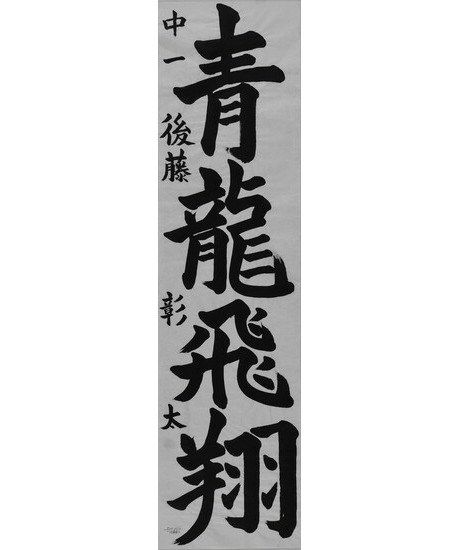 青龍飛翔
中一 後藤 彰太